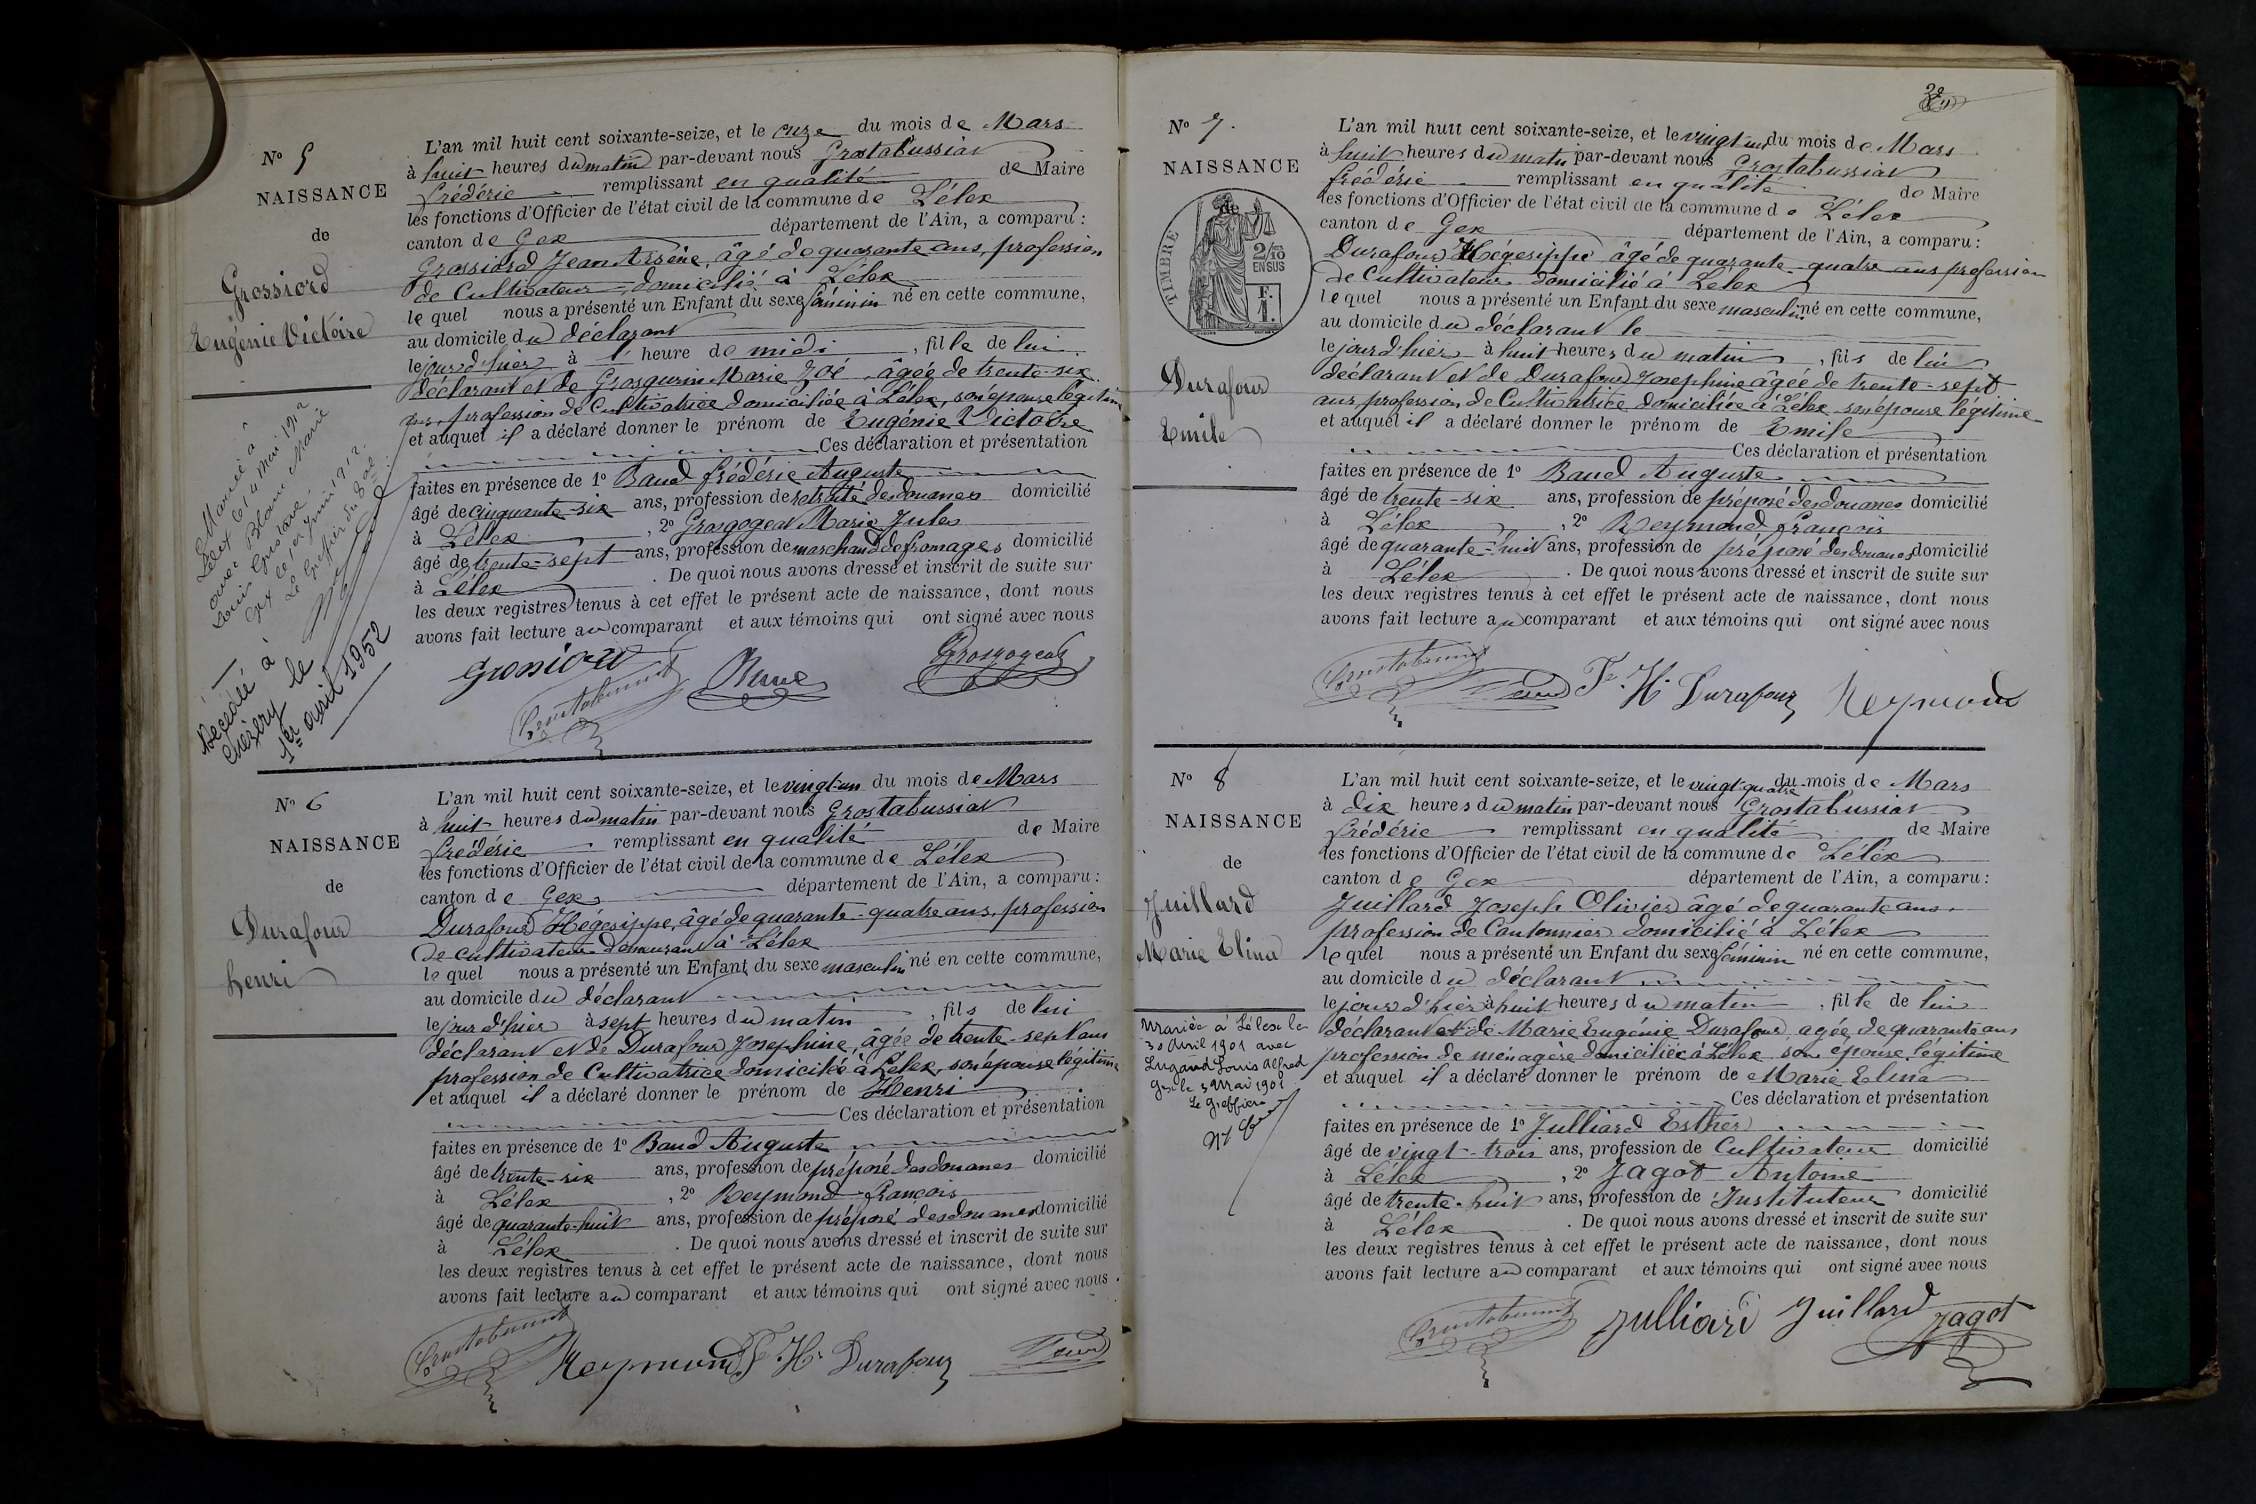 No 5
NAISSANCE
de
Grossiord
Eugénie Victoire
Mariée à
Lélex le 14 Mai 1912
avec Blanc Marie
Louis Gustave
Gex le 1er Juin 1912.
Le Greffier
Décédée à
Chézery le
1er avril 1952
L'an mil huit cent soixante-seize, et le onze du mois de Mars
à huit heures du matin par-devant nous Grostabussiat
frédéric remplissant en qualité de Maire
les fonctions d'Officier de l'état civil de la commune de Lélex
canton de Gex département de l'Ain, a comparu :
Grossiord Jean Arsène, âgé de quarante ans, profession
de Cultivateur, domicilié à Lélex
lequel nous a présenté un Enfant du sexe féminin né en cette commune,
au domicile du déclarant
le jour d'hier à 1 heure de midi, fille de lui
déclarant et de Grosgurin Marie Zoé, âgée de trente-six
ans, profession de Cultivatrice domiciliée à Lélex, son épouse légitime
et auquel il a déclaré donner le prénom de Eugénie Victoire
Ces déclaration et présentation
faites en présence de 1o Baud frédéric Auguste
âgé de cinquante-six ans, profession de retraité des douanes domicilié
à Lélex, 2o Grosgogeat Marie Jules
âgé de trente-sept ans, profession de marchand de fromages domicilié
à Lélex. De quoi nous avons dressé et inscrit de suite sur
les deux registres tenus à cet effet le présent acte de naissance, dont nous
avons fait lecture au comparant et aux témoins qui ont signé avec nous
Grossiord Grosgogeat
Grostabussiat
No 6
NAISSANCE
de
Durafour
henri
L'an mil huit cent soixante-seize, et le vingt-un du mois de Mars
à huit heures du matin par-devant nous Grostabussiat
frédéric remplissant en qualité de Maire
les fonctions d'Officier de l'état civil de la commune de Lélex
canton de Gex département de l'Ain, a comparu :
Durafour Hégésippe, âgé de quarante-quatre ans, profession
de cultivateur demeurant à Lélex
lequel nous a présenté un Enfant du sexe masculin né en cette commune,
au domicile du déclarant
le jour d'hier à sept heures du matin, fils de lui
déclarant et de Durafour Josephine, âgée de trente-sept ans
profession de Cultivatrice domiciliée à Lélex, son épouse légitime
et auquel il a déclaré donner le prénom de Henri
Ces déclaration et présentation
faites en présence de 1o Baud Auguste
âgé de trente-six ans, profession de préposé des douanes domicilié
à Lélex, 2o Reymond françois
âgé de quarante-huit ans, profession de préposé des douanes domicilié
à Lélex. De quoi nous avons dressé et inscrit de suite sur
les deux registres tenus à cet effet le présent acte de naissance, dont nous
avons fait lecture au comparant et aux témoins qui ont signé avec nous.
Grostabussiat Reymond F. H. Durafour Baud
No 7.
NAISSANCE
de
TIMBRE
2/10
EN SUS
F.
1.
Durafour
Emile
L'an mil huit cent soixante-seize, et le vingt un du mois de Mars
à huit heures du matin par-devant nous Grostabussiat
frédéric remplissant en qualité de Maire
les fonctions d'Officier de l'état civil de la commune de Lélex
canton de Gex département de l'Ain, a comparu :
Durafour Hégésippe âgé de quarante-quatre ans profession
de Cultivateur domicilié à Lélex
lequel nous a présenté un Enfant du sexe masculin né en cette commune,
au domicile du déclarant le
le jour d'hier à huit heures du matin, fils de lui
déclarant et de Durafour Josephine âgée de trente-sept
ans, profession de Cultivatrice domiciliée à Lélex son épouse légitime
et auquel il a déclaré donner le prénom de Emile
Ces déclaration et présentation
faites en présence de 1o Baud Auguste
âgé de trente-six ans, profession de préposé des douanes domicilié
à Lélex, 2o Reymond françois
âgé de quarante-huit ans, profession de préposé des douanes domicilié
à Lélex. De quoi nous avons dressé et inscrit de suite sur
les deux registres tenus à cet effet le présent acte de naissance, dont nous
avons fait lecture au comparant et aux témoins qui ont signé avec nous
Grostabussiat Baud F. H. Durafour Reymond
No 8
NAISSANCE
de
Juillard
Marie Elina
Mariée à Lélex le
30 Avril 1901 avec
Lugand Louis Alfred
Gex le 3 Mai 1901
Le Greffier
L'an mil huit cent soixante-seize, et le vingt-quatre du mois de Mars
à dix heures du matin par-devant nous Grostabussiat
frédéric remplissant en qualité de Maire
les fonctions d'Officier de l'état civil de la commune de Lélex
canton de Gex département de l'Ain, a comparu :
Juillard Joseph Olivier âgé de quarante ans,
profession de Cantonnier domicilié à Lélex
lequel nous a présenté un Enfant du sexe féminin né en cette commune,
au domicile du déclarant
le jour d'hier à huit heures du matin, fille de lui
déclarant et de Marie Eugenie Durafour, agée de quarante ans
profession de ménagère domiciliée à Lélex son épouse légitime
et auquel il a déclaré donner le prénom de Marie Elina
Ces déclaration et présentation
faites en présence de 1o Julliard Esther
âgé de vingt-trois ans, profession de Cultivateur domicilié
à Lélex, 2o Jagot Antoine
âgé de trente-huit ans, profession de Instituteur domicilié
à Lélex. De quoi nous avons dressé et inscrit de suite sur
les deux registres tenus à cet effet le présent acte de naissance, dont nous
avons fait lecture au comparant et aux témoins qui ont signé avec nous
Grostabussiat Julliard Juillard Jagot